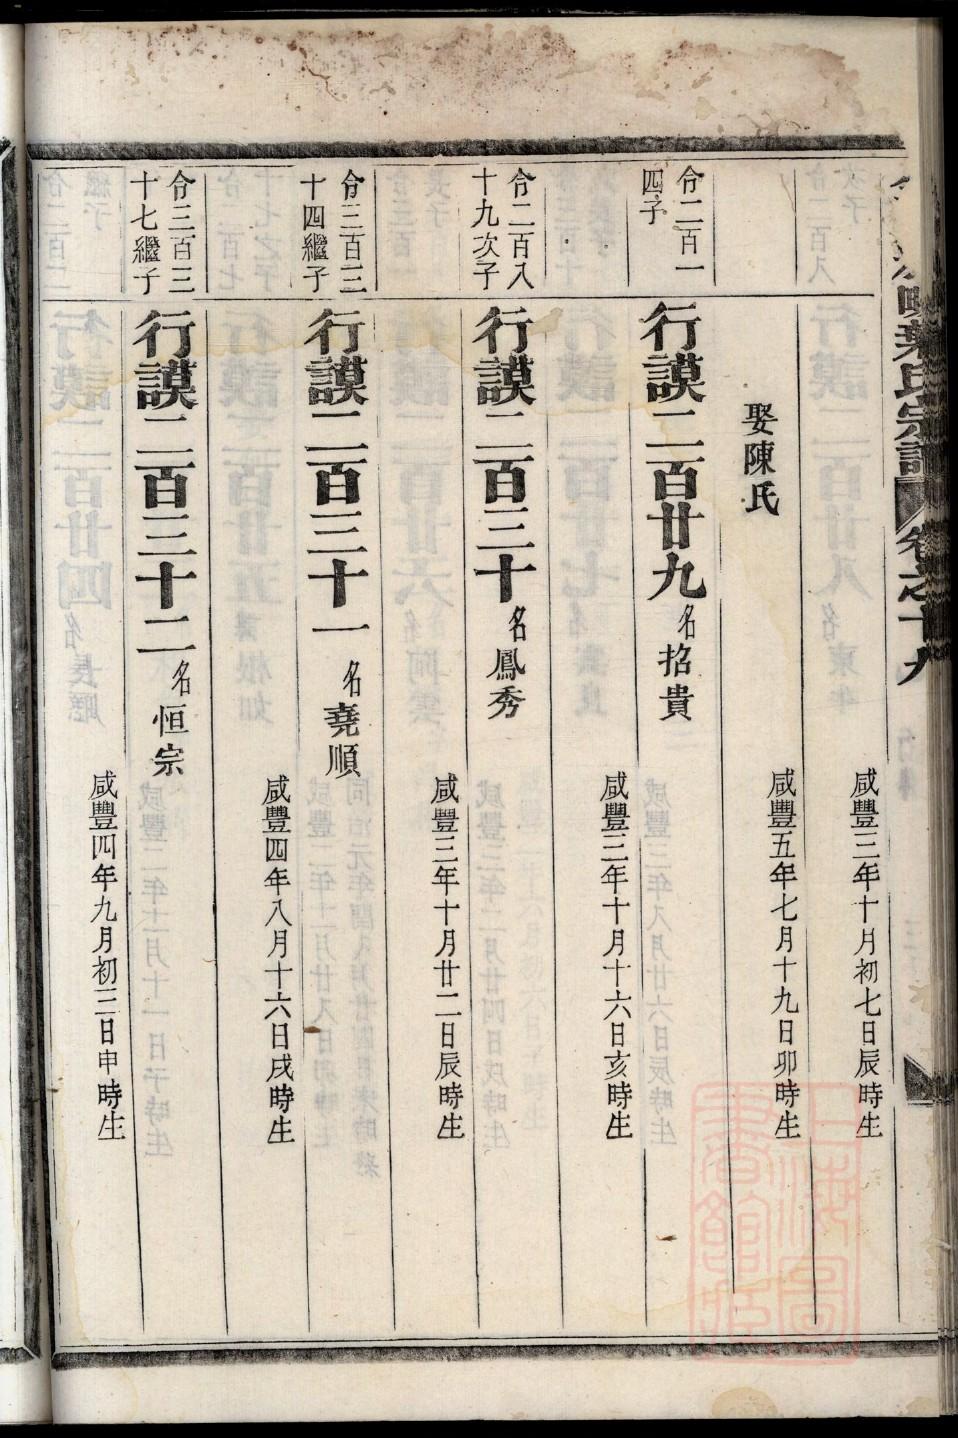 葉氏宗譜
卷之十九
咸豐三年十月初七日辰時生
娶陳氏
咸豐五年七月十九日卯時生
令二百一
四子
行謨二百廿九 名招貴
咸豐三年十月十六日亥時生
令二百八
十九次子
行謨二百三十 名鳳秀
咸豐三年十月廿二日辰時生
令三百三
十四繼子
行謨二百三十一 名堯順
咸豐四年八月十六日戌時生
令三百三
十七繼子
行謨二百三十二 名恒宗
咸豐四年九月初三日申時生